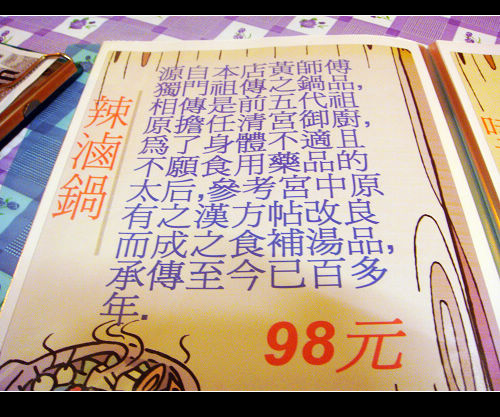 辣滷鍋
源自本店黃師傅
獨門祖傳之鍋品,
相傳是前五代祖
原擔任清宮御廚,
為了身體不適且
不願食用藥品的
太后,參考宮中原
有之漢方帖改良
而成之食補湯品,
承傳至今已百多
年.
98元